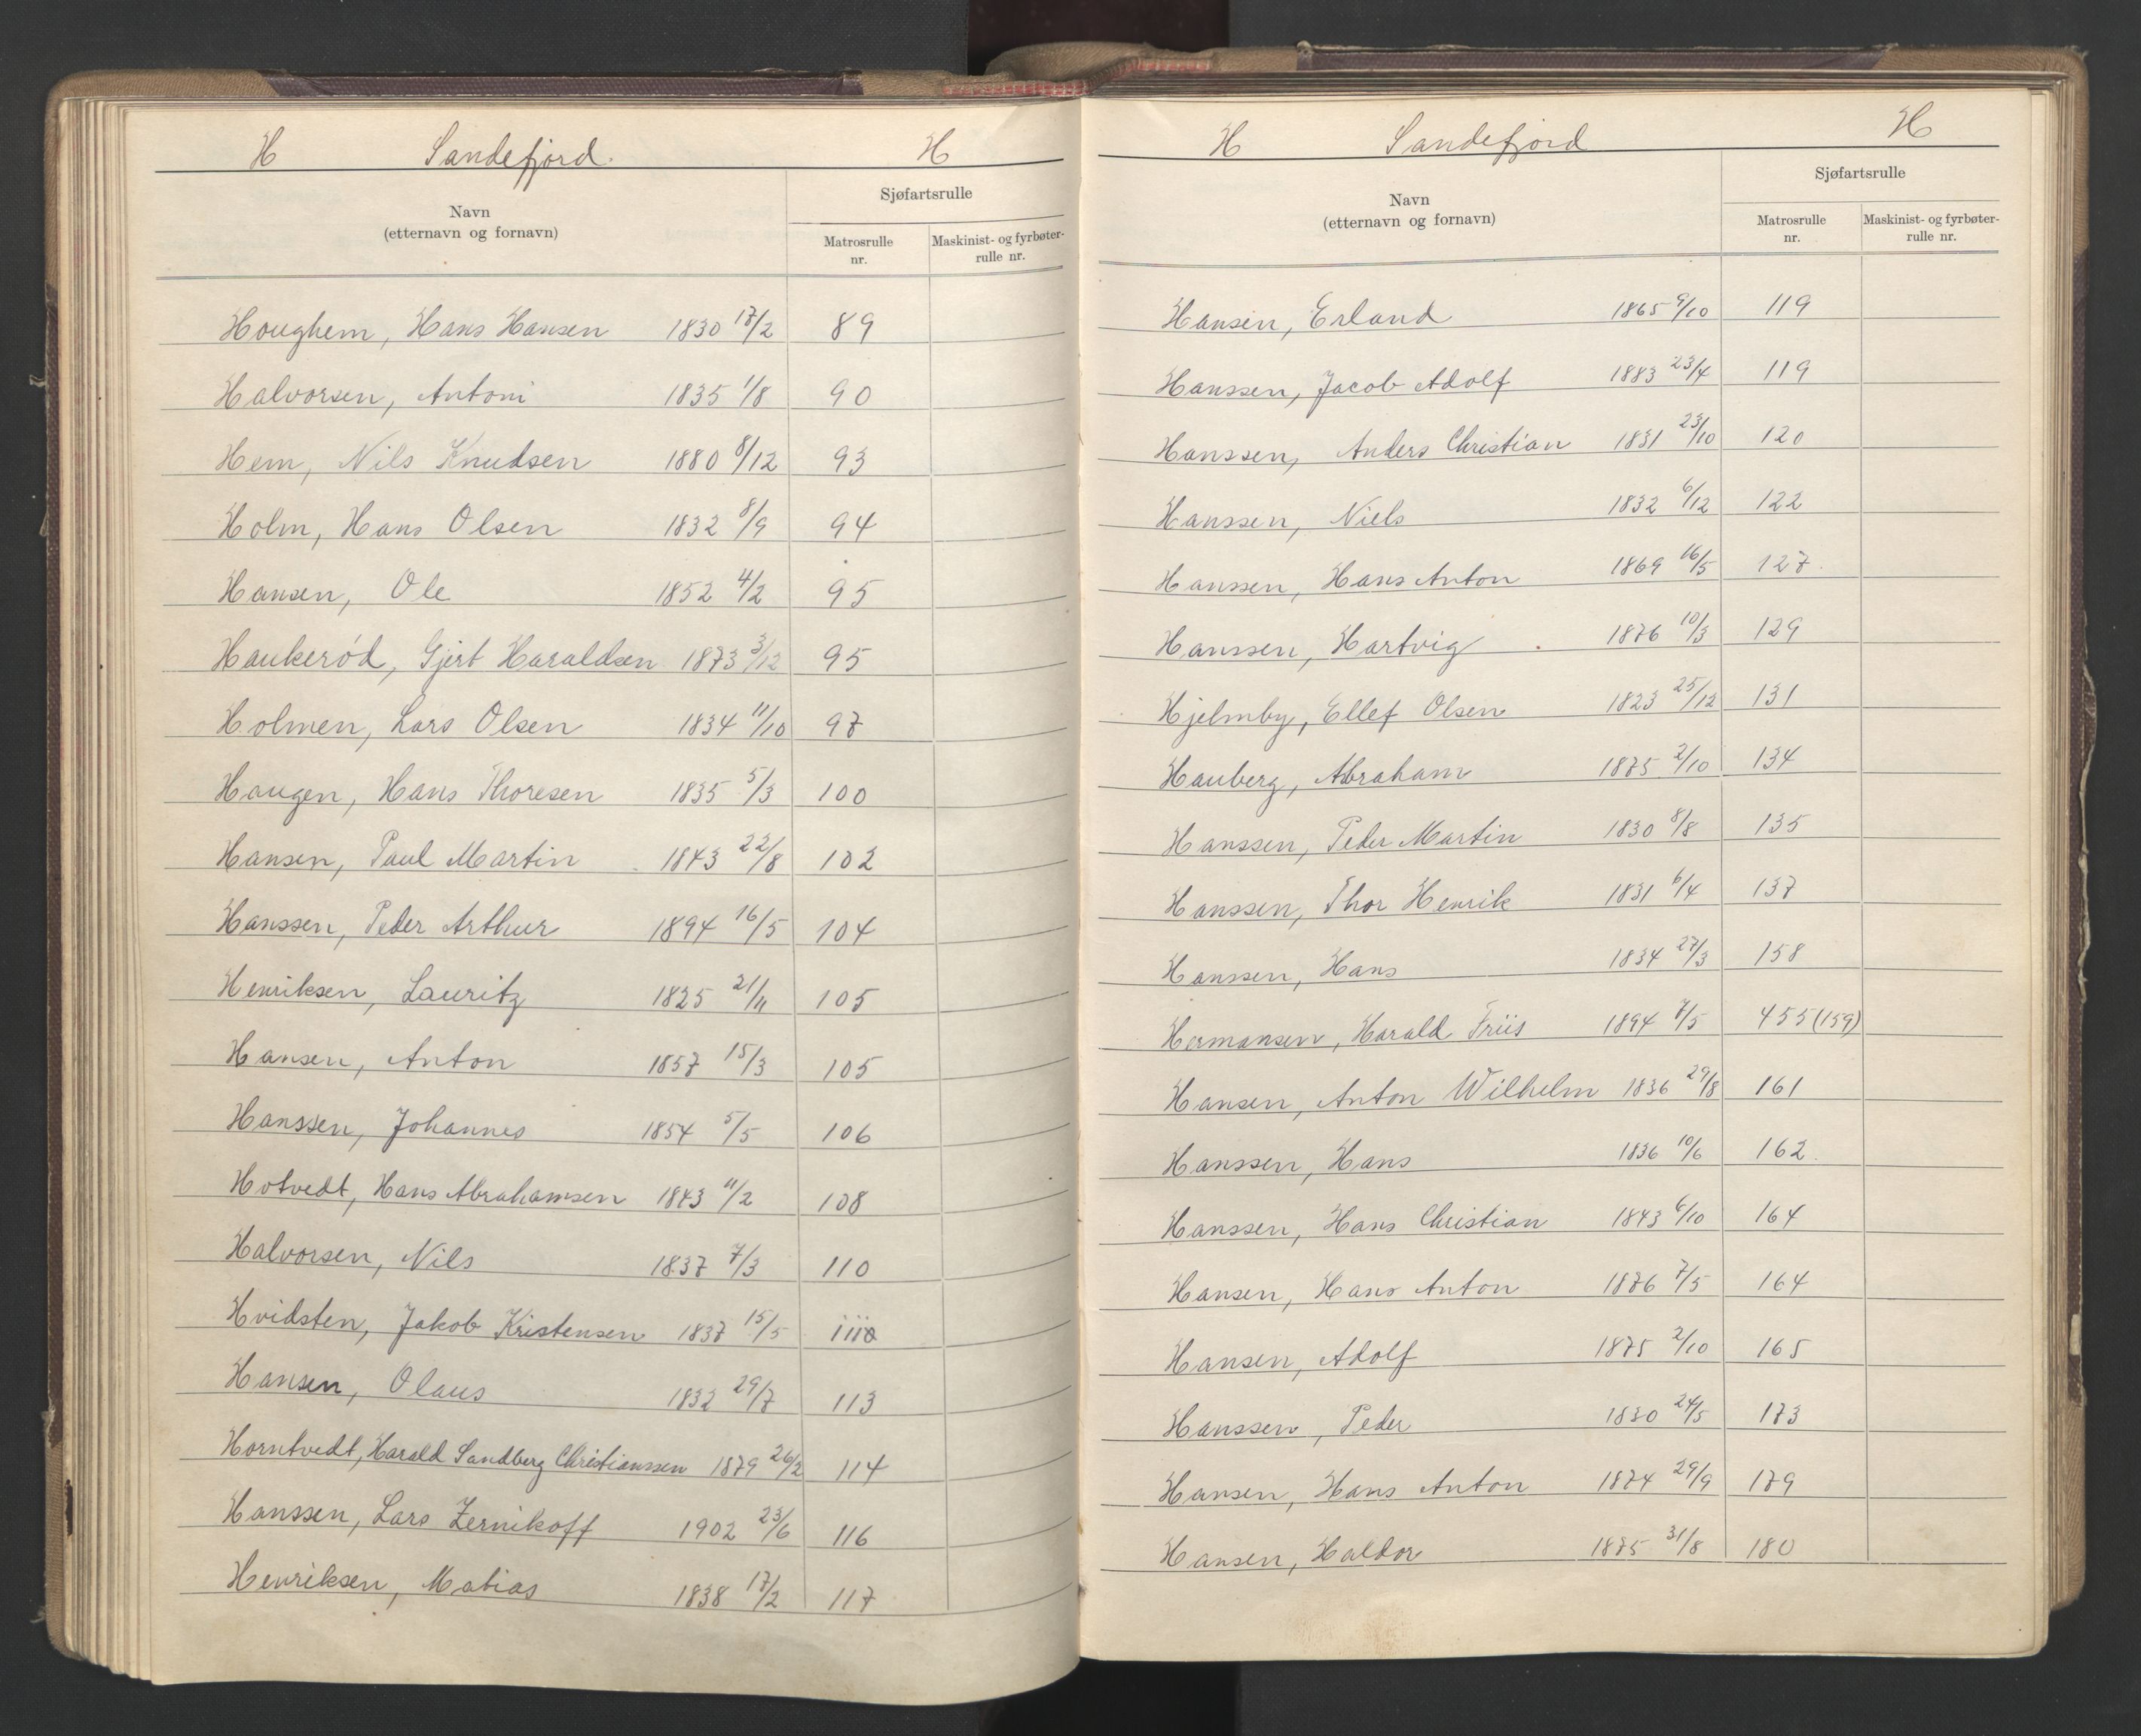 H Sandefjord. H
Navn
(etternavn og fornavn)
Sjøfartsrulle
Matrosrulle nr.
Maskinist- og fyrbøter-rulle nr.
Houghem, Hans Hansen 1830 17/2 89
Halvorsen, Antoni 1835 1/8 90
Hem, Nils Knudsen 1880 8/12 93
Holm, Hans Olsen 1832 8/9 94
Hansen, Ole 1852 4/2 95
Haukerød, Gjert Haraldsen 1873 3/12 95
Holmen, Lars Olsen 1834 11/10 97
Haugen, Hans Thoresen 1835 5/3 100
Hansen, Paul Martin 1843 22/8 102
Hanssen, Peder Arthur 1894 16/5 104
Henriksen, Lauritz 1825 21/11 105
Hansen, Anton 1857 15/3 105
Hanssen, Johannes 1854 5/5 106
Hotvedt, Hans Abrahamsen 1843 11/2 108
Halvorsen, Nils 1837 7/3 110
Hvidsten, Jakob Kristensen 1837 15/5
Hansen, Olaus 1832 29/7 113
Horntvedt, Harald Sandberg Christianssen 1879 26/2 114
Hanssen, Lars Zernikoff 1902 23/6 116
Henriksen, Matias 1838 17/2 117
H Sandefjord H
Navn
(etternavn og fornavn)
Sjøfartsrulle
Matrosrulle nr.
Maskinist- og fyrbøter-rulle nr.
Hansen, Erland 1865 9/10 119
Hanssen, Jacob Adolf 1883 23/4 119
Hanssen, Anders Christian 1831 23/10 120
Hanssen, Niels 1832 6/12 122
Hanssen, Hans Anton 1869 16/5 127
Hanssen, Hartvig 1876 10/3 129
Hjelmby, Ellef Olsen 1823 25/12 131
Hauberg, Abraham 1875 2/10 134
Hanssen, Peder Martin 1830 8/8 135
Hanssen, Thor Henrik 1831 6/4 137
Hanssen, Hans 1834 27/3 158
Hermansen, Harald Friis 1894 7/5 455 (159)
Hansen, Anton Wilhelm 1836 29/8 161
Hanssen, Hans 1836 10/6 162
Hanssen, Hans Christian 1843 6/10 164
Hansen, Hans Anton 1876 7/5 164
Hansen, Adolf 1875 2/10 165
Hanssen, Peder 1830 24/5 173
Hansen, Hans Anton 1874 29/9 179
Hansen, Haldor 1875 31/8 180